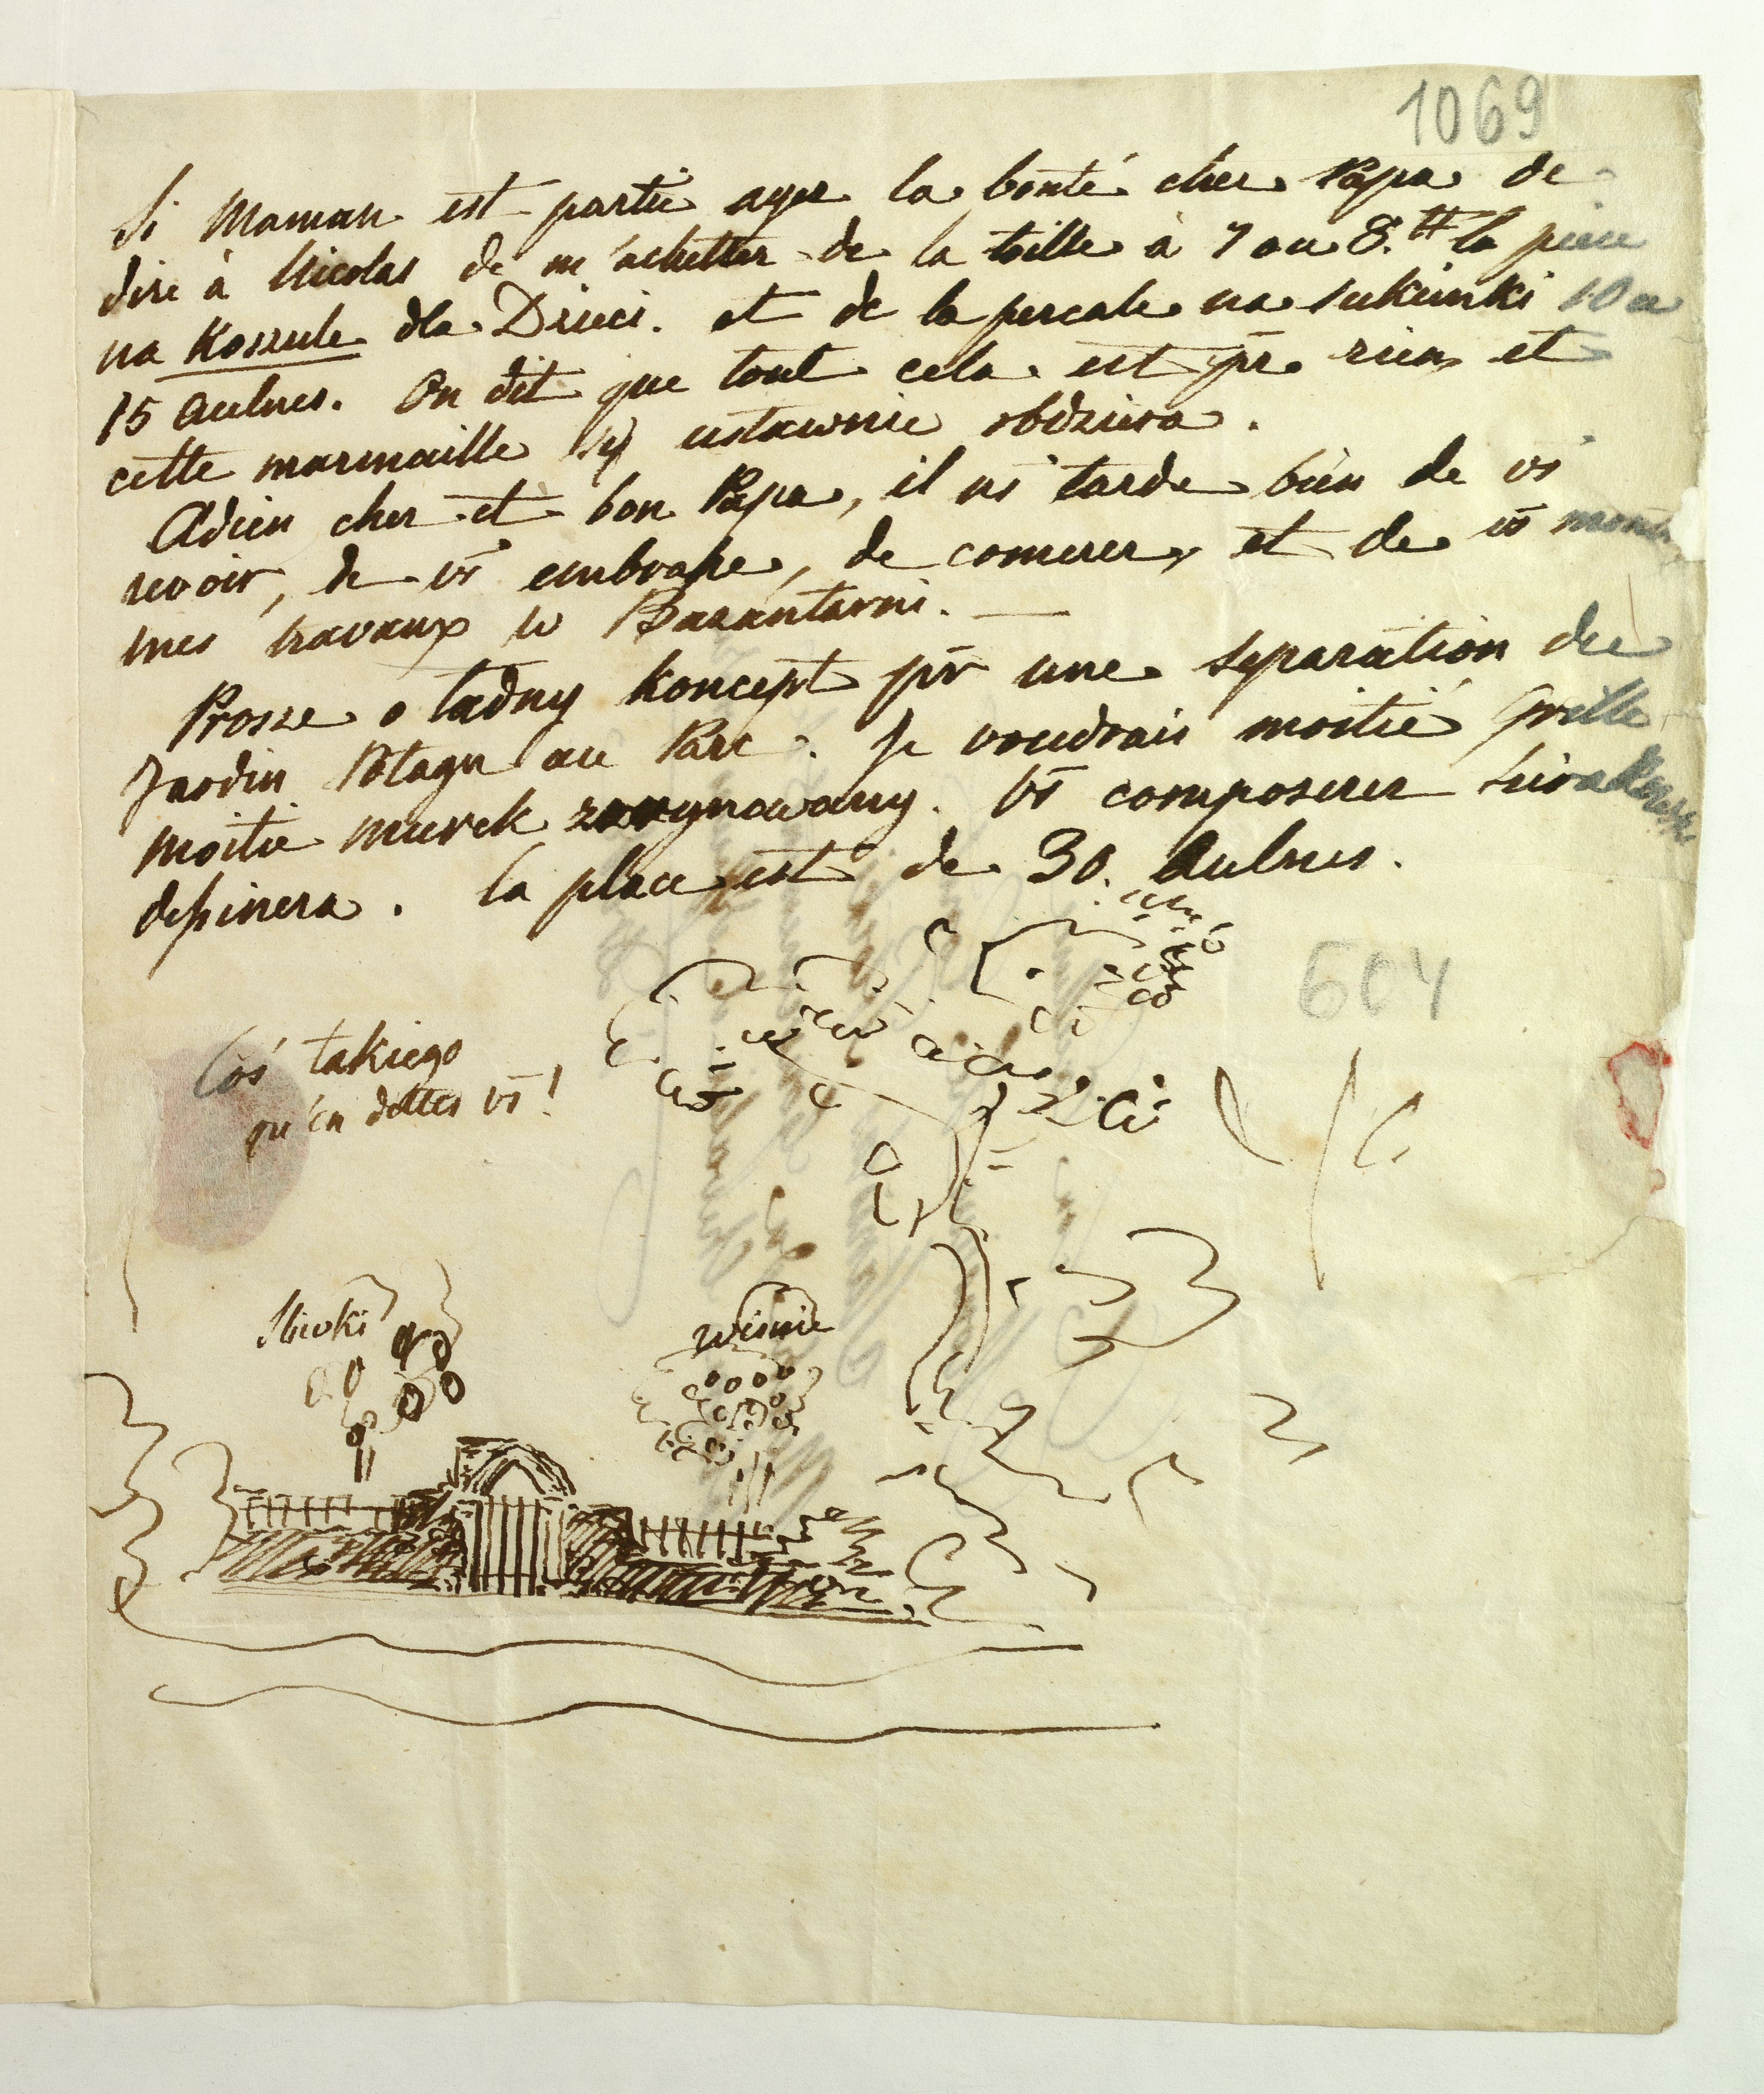 1069
Si Maman est partie ayez la bonté cher Papa de
dire à Nicolas de m'achetter de la toille à 7 ou 8.# la piece
na Koszule dla Dzieci. et de la percale na sukienki 10 a
15 aulnes. On dit que tout cela est pr. rien et
cette marmaille się ustawnie obdziera.
Adieu cher et bon Papa, il me tarde bien de vs
revoir, de vs embrasse, de comerer, et de vs
mes travaux w Bazantarni. —
Prosze o ładny koncept pr une separation du
Jardin Potager au Parc. Je voudrais moitié grille
moitié murek zrrygnowany. Vs composerez
dessinera. la place est de 30. Aulnes.
604
Coś takiego
qu'en dittes vs!
Sliwki
wisnie